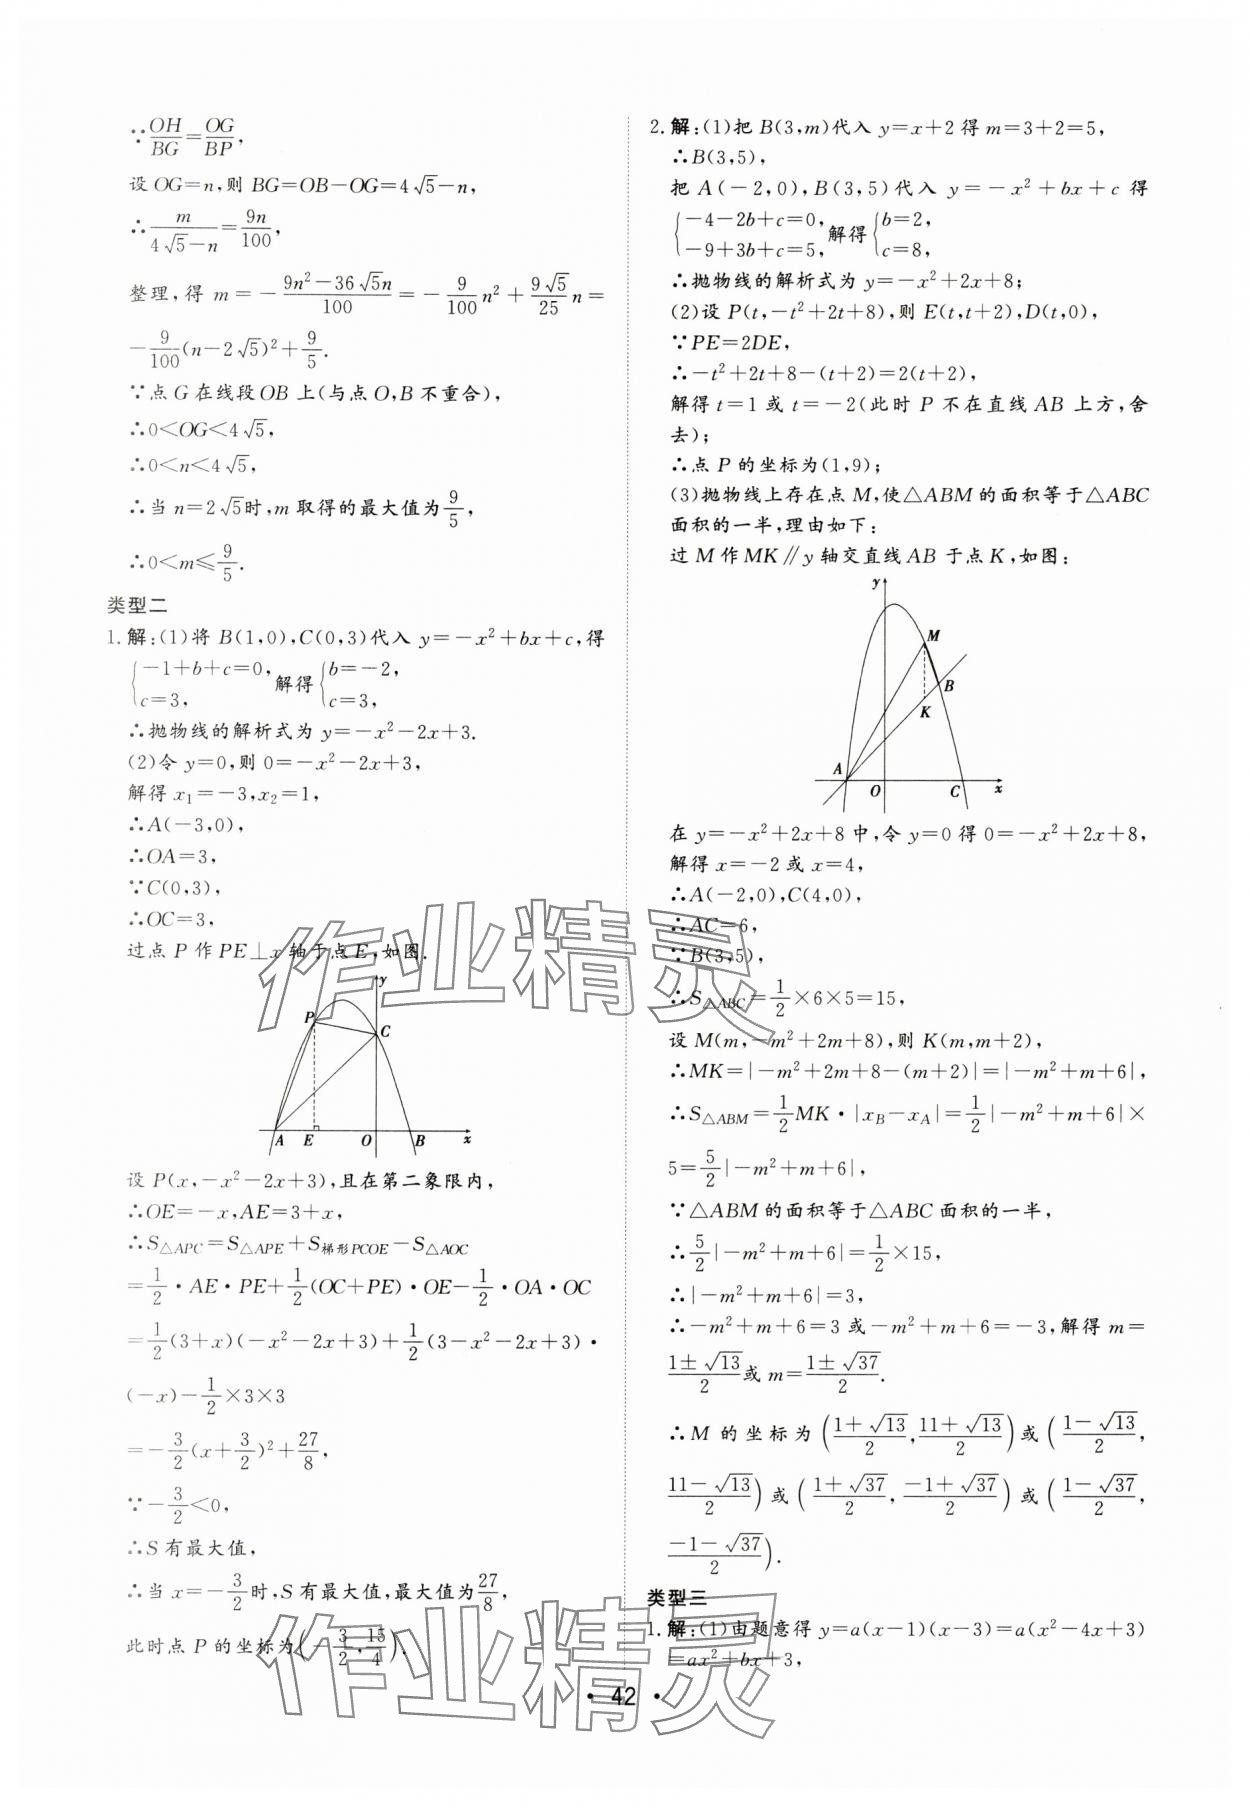 ∵OH/BG=OG/BP,
设 OG=n,则 BG=OB-OG=4√5-n,
∴m/(4√5-n)=9n/100,
整理,得 m=-(9n²-36√5n)/100=-9/100n²+9√5/25n=
-9/100(n-2√5)²+9/5.
∵点 G 在线段 OB 上(与点 O,B 不重合),
∴0<OG<4√5,
∴0<n<4√5,
∴当 n=2√5时,m 取得的最大值为9/5,
∴0<m≤9/5.
类型二
1.解:(1)将 B(1,0),C(0,3)代入 y=-x²+bx+c,得
{-1+b+c=0, c=3, 解得{b=-2, c=3,
∴抛物线的解析式为 y=-x²-2x+3.
(2)令 y=0,则 0=-x²-2x+3,
解得 x₁=-3,x₂=1,
∴A(-3,0),
∴OA=3,
∵C(0,3),
∴OC=3,
过点 P 作 PE⊥x 轴于点 E,如图.
y
P
C
A E O B x
设 P(x,-x²-2x+3),且在第二象限内,
∴OE=-x,AE=3+x,
∴S△APC=S△APE+S梯形PCOE-S△AOC
=1/2·AE·PE+1/2(OC+PE)·OE-1/2·OA·OC
=1/2(3+x)(-x²-2x+3)+1/2(3-x²-2x+3)·
(-x)-1/2×3×3
=-3/2(x+3/2)²+27/8,
∵-3/2<0,
∴S 有最大值,
∴当 x=-3/2时,S 有最大值,最大值为27/8,
此时点 P 的坐标为(-3/2,15/4).
2.解:(1)把 B(3,m)代入 y=x+2 得 m=3+2=5,
∴B(3,5),
把 A(-2,0),B(3,5)代入 y=-x²+bx+c 得
{-4-2b+c=0, -9+3b+c=5, 解得{b=2, c=8,
∴抛物线的解析式为 y=-x²+2x+8;
(2)设 P(t,-t²+2t+8),则 E(t,t+2),D(t,0),
∵PE=2DE,
∴-t²+2t+8-(t+2)=2(t+2),
解得 t=1 或 t=-2(此时 P 不在直线 AB 上方,舍
去);
∴点 P 的坐标为(1,9);
(3)抛物线上存在点 M,使△ABM 的面积等于△ABC
面积的一半,理由如下:
过 M 作 MK∥y 轴交直线 AB 于点 K,如图:
y
M
B
K
A O C x
在 y=-x²+2x+8 中,令 y=0 得 0=-x²+2x+8,
解得 x=-2 或 x=4,
∴A(-2,0),C(4,0),
∴AC=6,
∵B(3,5),
∴S△ABC=1/2×6×5=15,
设 M(m,-m²+2m+8),则 K(m,m+2),
∴MK=|-m²+2m+8-(m+2)|=|-m²+m+6|,
∴S△ABM=1/2MK·|xB-xA|=1/2|-m²+m+6|×
5=5/2|-m²+m+6|,
∵△ABM 的面积等于△ABC 面积的一半,
∴5/2|-m²+m+6|=1/2×15,
∴|-m²+m+6|=3,
∴-m²+m+6=3 或-m²+m+6=-3,解得 m=
(1±√13)/2或 m=(1±√37)/2.
∴M 的坐标为((1+√13)/2,(11+√13)/2)或((1-√13)/2,
(11-√13)/2)或((1+√37)/2,(-1+√37)/2)或((1-√37)/2,
(-1-√37)/2).
类型三
1.解:(1)由题意得 y=a(x-1)(x-3)=a(x²-4x+3)
=ax²+bx+3,
·42·
作业精灵
作业精灵